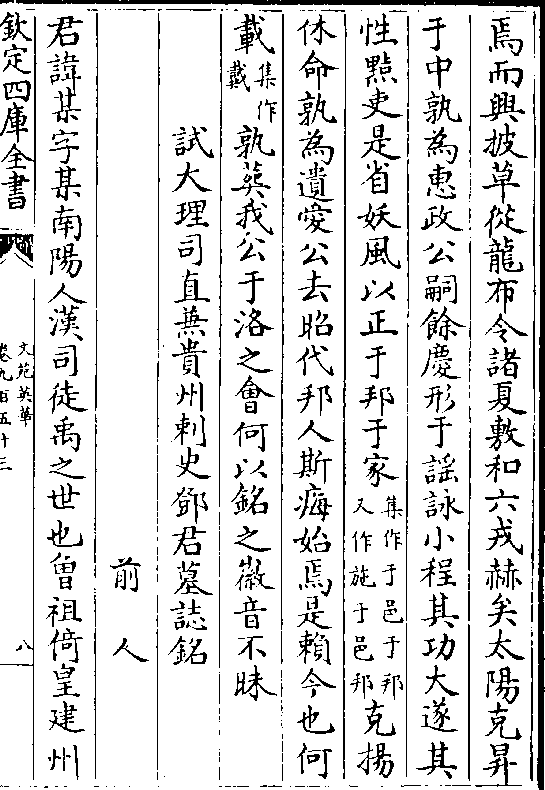 焉而興披草從龍布令諸夏敷和六戎赫矣太陽克昇
于中孰為惠政公嗣餘慶形于謡詠小程其功大遂其
性㸃吏是省妖風以正于邦于家集作于邑于邦又作施于邑邦克揚
休命孰為遺愛公去昭代邦人斯痗始焉是賴今也何
載集作戴孰葬我公于洛之㑹何以銘之徽音不昧
試大理司直兼貴州刺史鄧君墓誌銘
前人
君諱某字某南陽人漢司徒禹之世也曾祖倚皇建州
欽定四庫全書
文苑英華
卷九百五十三
八